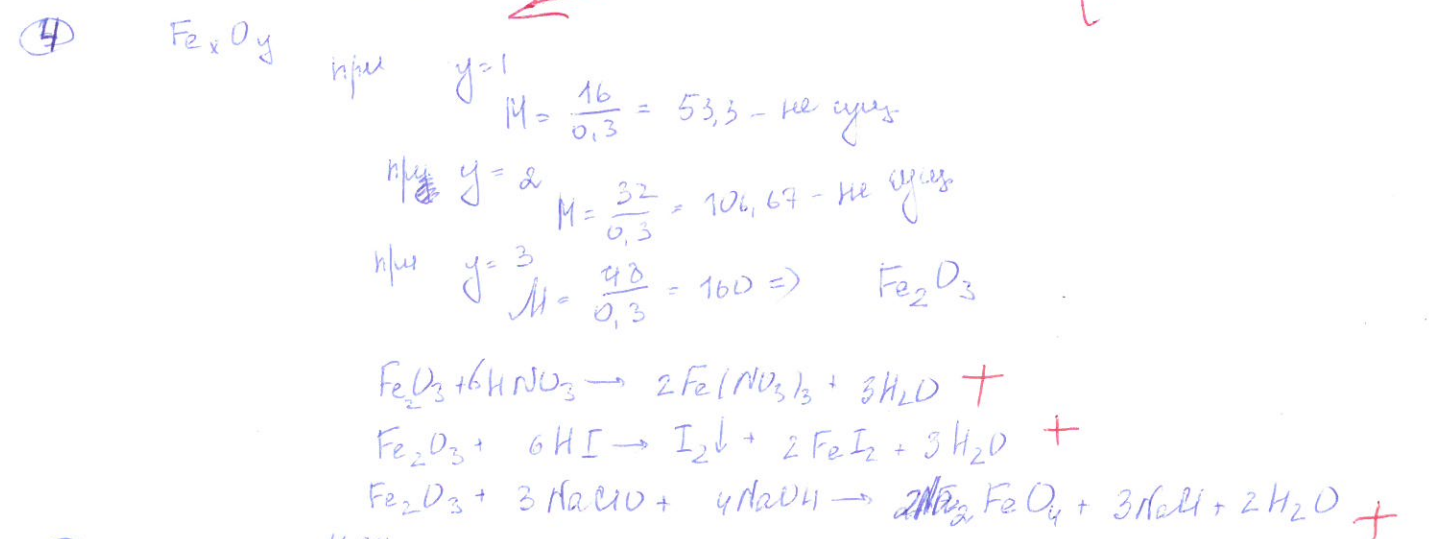 4 FeₓOy
при y=1
M = 16/0,3 = 53,3 - не сущ
при y = 2
M = 32/0,3 = 106,67 - не сущ
при y = 3
M = 48/0,3 = 160 => Fe₂O₃
Fe₂O₃ + 6HNO₃ → 2Fe(NO₃)₃ + 3H₂O +
Fe₂O₃ + 6HI → I₂↓ + 2FeI₂ + 3H₂O +
Fe₂O₃ + 3NaClO + 4NaOH → 2Na₂FeO₄ + 3NaCl + 2H₂O +